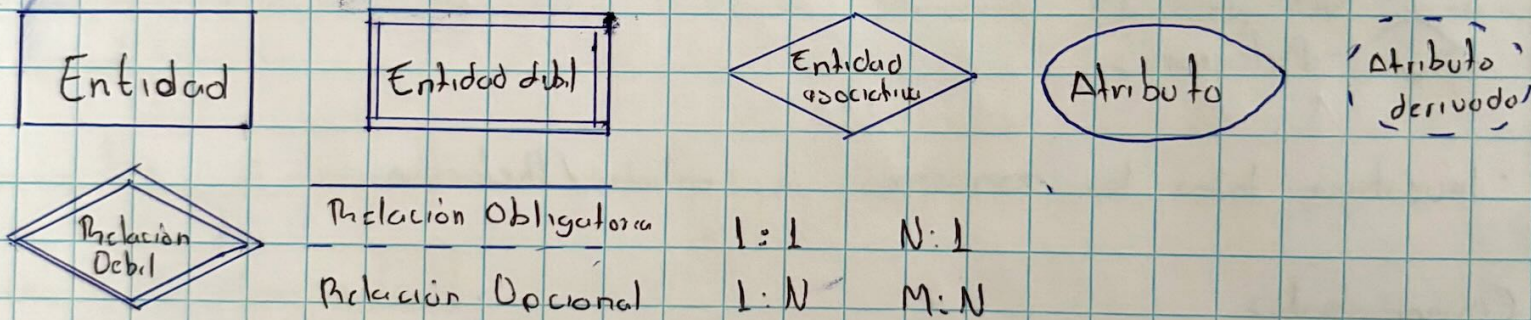 Entidad
Entidad débil
Entidad
asociativa
Atributo
Atributo
derivado
Relación
Debil
Relación Obligatoria
1:1 N:1
Relación Opcional
1:N M:N